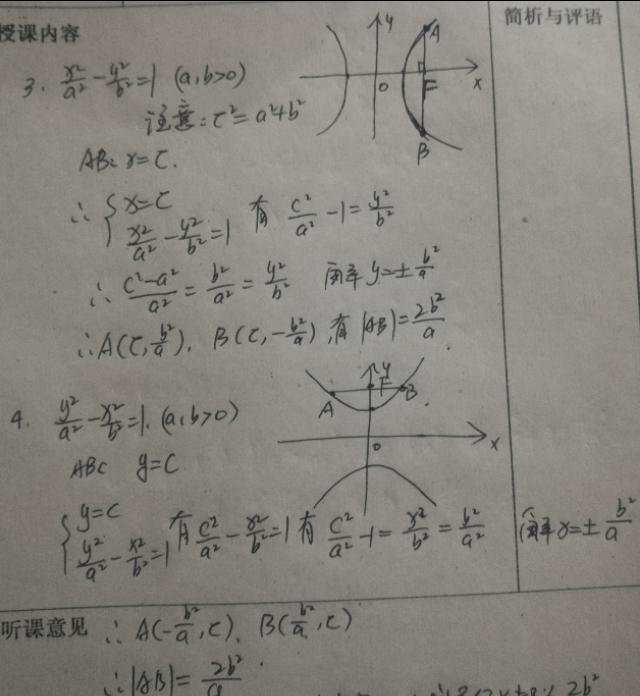 授课内容
简析与评语
3. x²/a² - y²/b² = 1 (a,b>0)
y
A
O
F
x
B
注意:c²=a²+b²
AB: x=c.
∴ { x=c
x²/a² - y²/b² = 1 有 c²/a² - 1 = y²/b²
∴ (c²-a²)/a² = b²/a² = y²/b² 解 y=± b²/a
∴ A(c, b²/a). B(c, -b²/a) 有 |AB| = 2b²/a.
y
A
F
B.
o
x
4. y²/a² - x²/b² = 1. (a,b>0)
AB: y=c
{ y=c
y²/a² - x²/b² = 1 有 c²/a² - x²/b² = 1 有 c²/a² - 1 = x²/b² = b²/a² 解 x=± b²/a
听课意见
∴ A(-b²/a, c). B(b²/a, c)
∴ |AB| = 2b²/a.
2b²